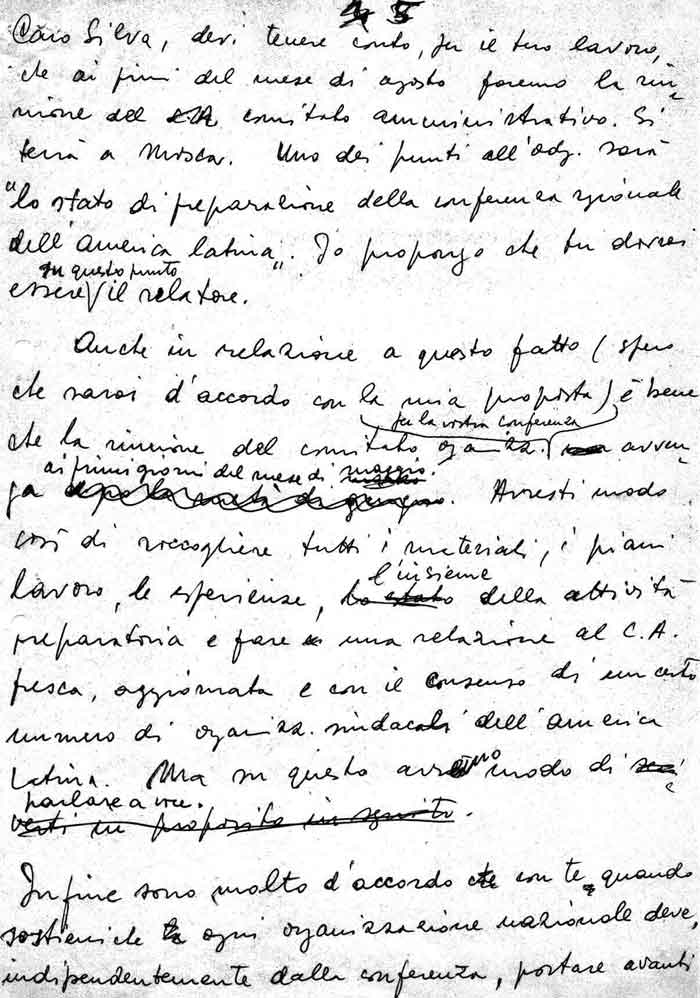 5
Caro Silva, devi tenere conto, per il tuo lavoro,
che ai primi del mese di agosto faremo la riu-
nione del comitato amministrativo. Si
terrà a Mosca. Uno dei punti all'odg. sarà
"lo stato di preparazione della conferenza regionale
dell'America latina". Io propongo che tu dovresti
su questo punto
essere il relatore.
Anche in relazione a questo fatto (spero
che sarai d'accordo con la mia proposta) è bene
per la vostra conferenza
che la riunione del comitato organizz. avven-
ai primi giorni del mese di maggio.
ga dopo la metà di giugno. Avresti modo
così di raccogliere tutti i materiali, i piani
l'insieme
lavoro, le esperienze, lo stato della attività
preparatoria e fare una relazione al C.A.
fresca, aggiornata e con il consenso di un certo
numero di organizz. sindacali dell'America
Latina. Ma su questo avremo modo di
parlare a voce.
verti in proposito in seguito.
Infine sono molto d'accordo con te quando
sostieni che ogni organizzazione nazionale deve,
indipendentemente dalla conferenza, portare avanti